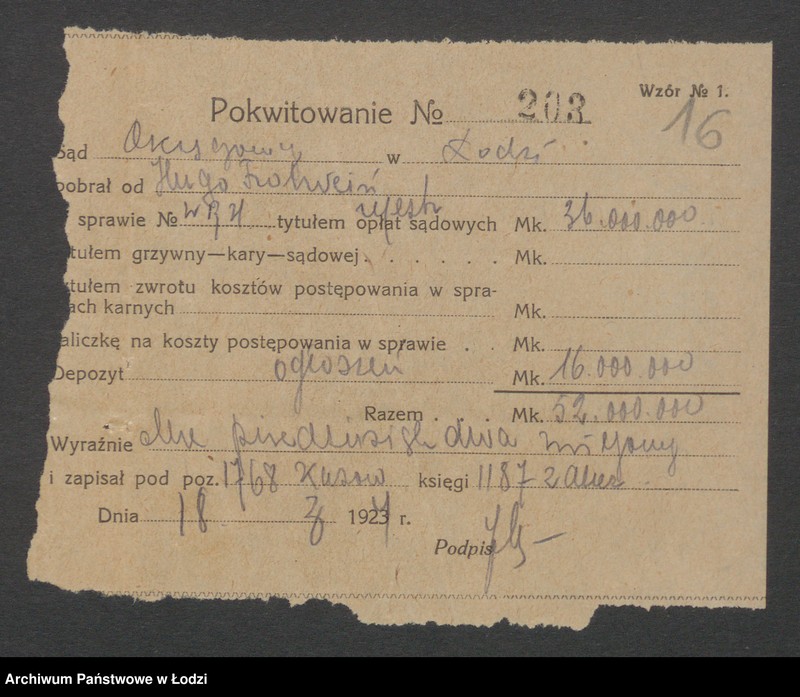 Wzór № 1.
16
Pokwitowanie № 203
Sąd Okręgowy w Łodzi
pobrał od Hugo
sprawie № tytułem opłat sądowych Mk. 36.000.000
tułem grzywny—kary—sądowej Mk.
tułem zwrotu kosztów postępowania w spra-
ach karnych Mk.
aliczkę na koszty postępowania w sprawie Mk.
Depozyt ogłoszeń Mk. 16.000.000
Razem Mk. 52.000.000
Wyraźnie Mk pięćdziesiąt dwa miljony
i zapisał pod poz. 1768 księgi 1187
Dnia 18 3 1924 r.
Podpis
Archiwum Państwowe w Łodzi